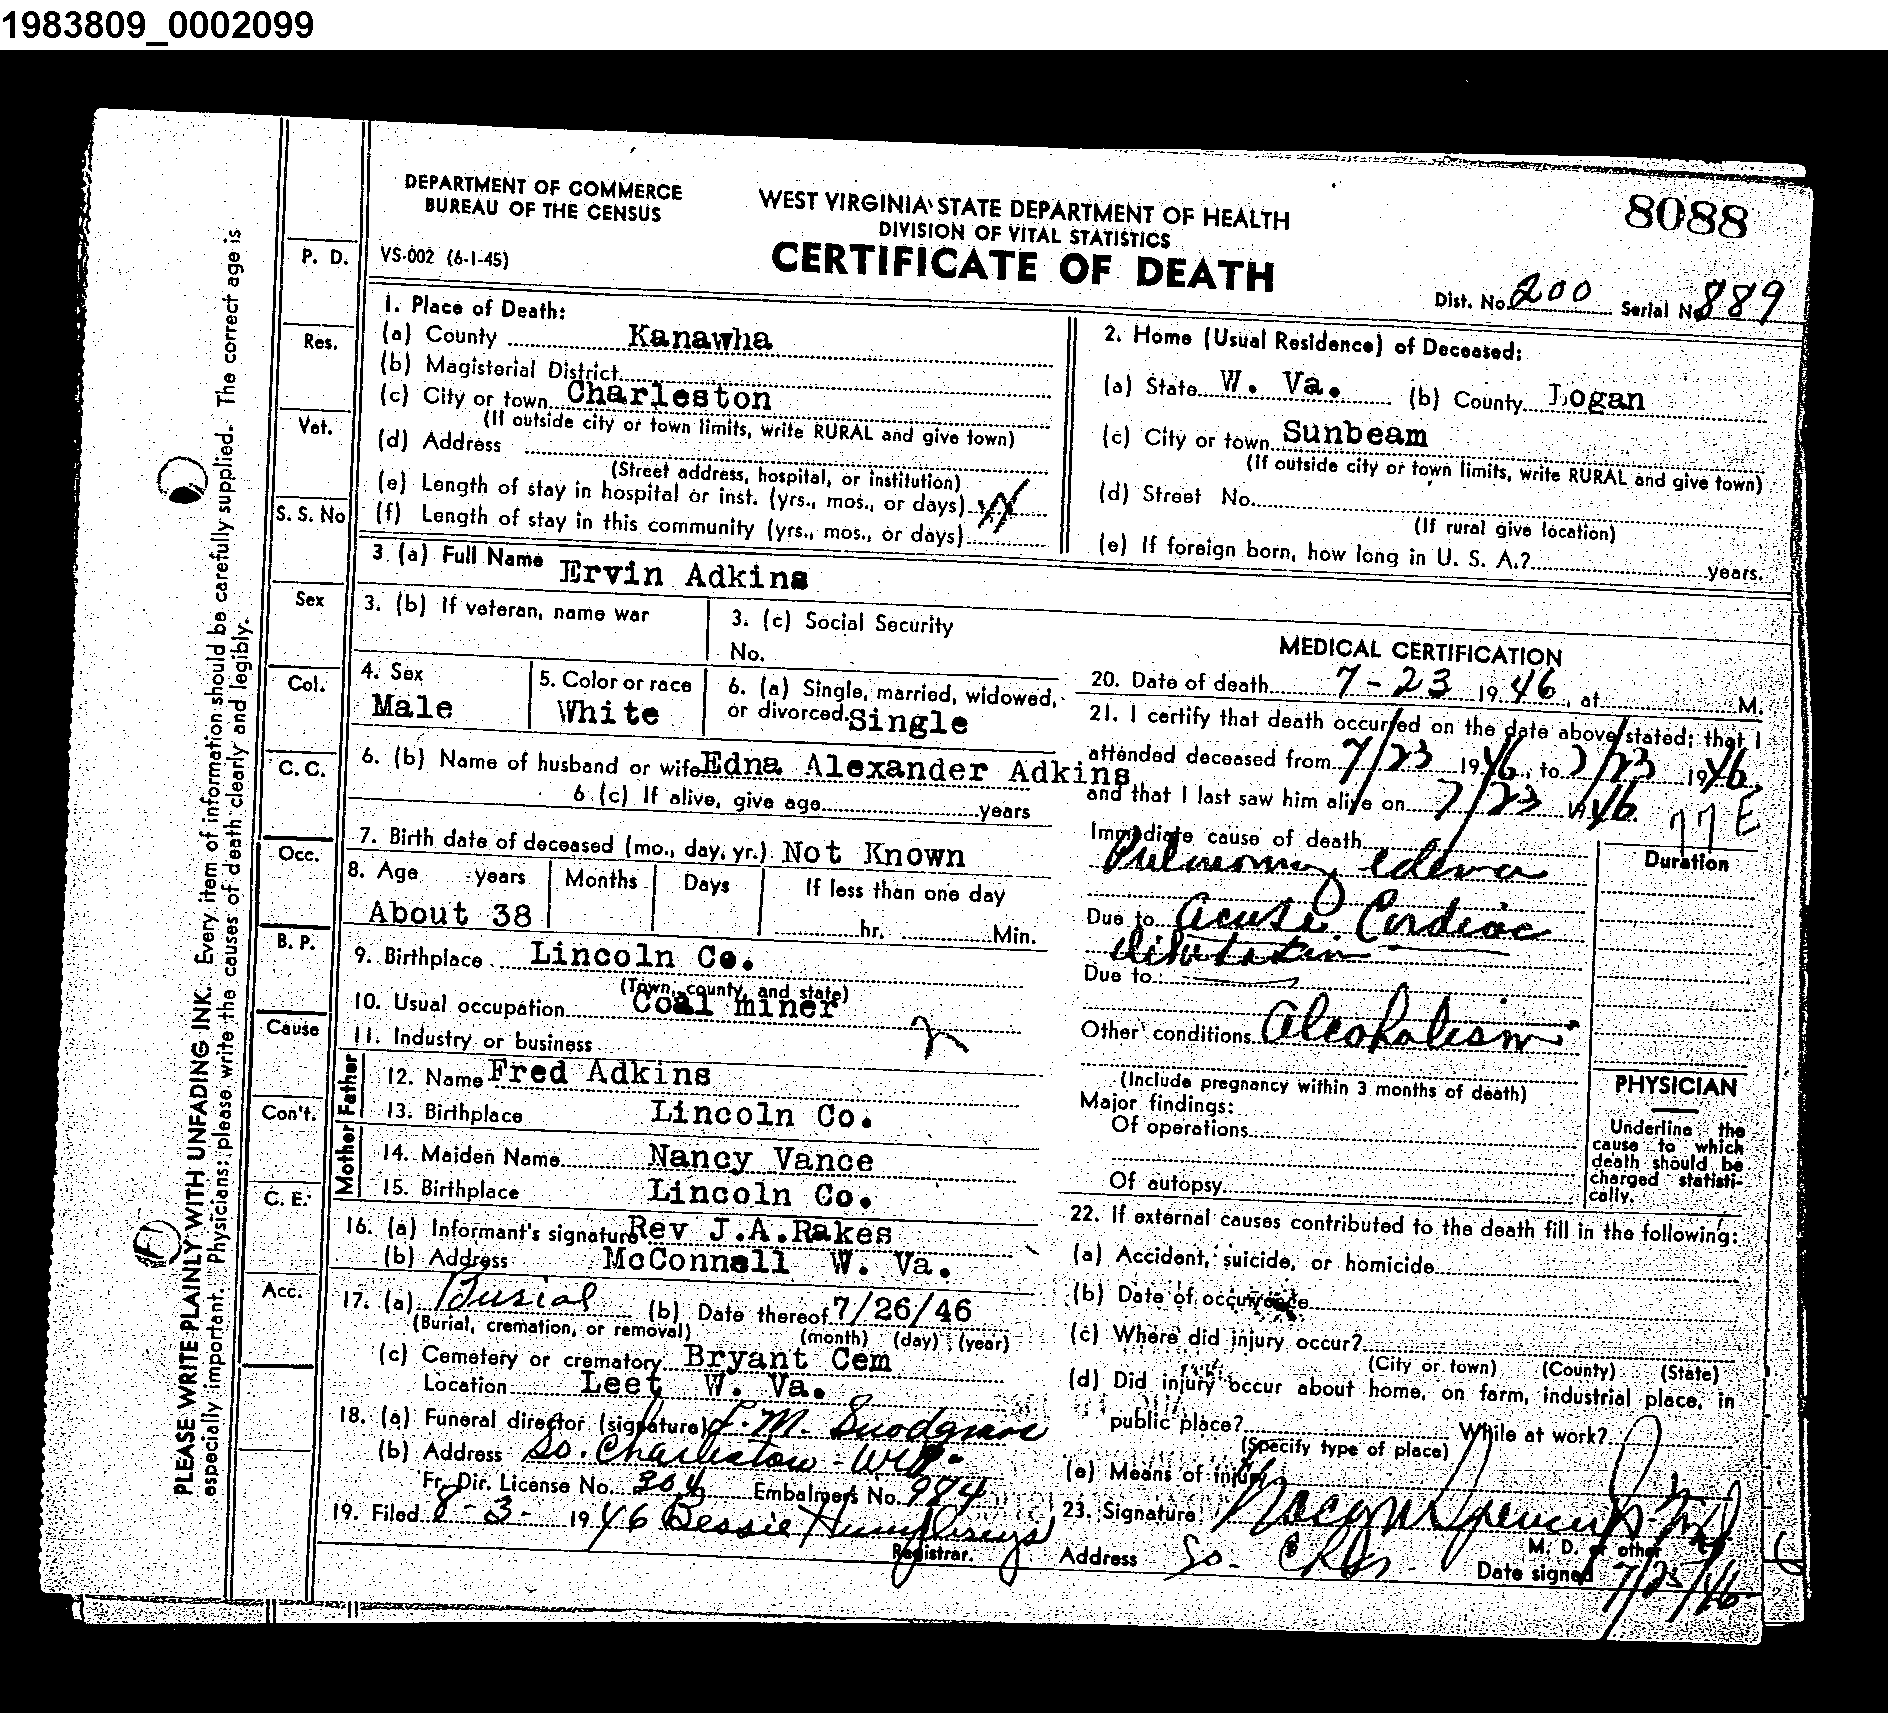 1983809_0002099
DEPARTMENT OF COMMERCE
BUREAU OF THE CENSUS
VS-002 (6-1-45)
WEST VIRGINIA STATE DEPARTMENT OF HEALTH
DIVISION OF VITAL STATISTICS
CERTIFICATE OF DEATH
8088
Dist. No. 200 Serial No. 889
PLEASE WRITE PLAINLY WITH UNFADING INK. Every item of information should be carefully supplied. The correct age is
especially important. Physicians: please write the causes of death clearly and legibly.
P. D.
Res.
Vet.
S. S. No
Sex
Col.
C. C.
Occ.
B. P.
Cause
Con't.
C. E.
Acc.
1. Place of Death:
(a) County Kanawha
(b) Magisterial District
(c) City or town Charleston
(If outside city or town limits, write RURAL and give town)
(d) Address
(Street address, hospital, or institution)
(e) Length of stay in hospital or inst. (yrs., mos., or days)
(f) Length of stay in this community (yrs., mos., or days)
2. Home (Usual Residence) of Deceased:
(a) State W. Va. (b) County Logan
(c) City or town Sunbeam
(If outside city or town limits, write RURAL and give town)
(d) Street No.
(If rural give location)
(e) If foreign born, how long in U. S. A.? years.
3 (a) Full Name Ervin Adkins
3. (b) If veteran, name war
3. (c) Social Security
No.
4. Sex
Male
5. Color or race
White
6. (a) Single, married, widowed,
or divorced. Single
6. (b) Name of husband or wife Edna Alexander Adkins
6 (c) If alive, give age years
7. Birth date of deceased (mo., day, yr.) Not Known
8. Age years Months Days If less than one day
About 38 hr. Min.
9. Birthplace Lincoln Co.
(Town, county, and state)
10. Usual occupation Coal miner
11. Industry or business
Father
12. Name Fred Adkins
13. Birthplace Lincoln Co.
Mother
14. Maiden Name Nancy Vance
15. Birthplace Lincoln Co.
16. (a) Informant's signature Rev J.A.Rakes
(b) Address McConnell W. Va.
17. (a) Burial (b) Date thereof 7/26/46
(Burial, cremation, or removal) (month) (day) (year)
(c) Cemetery or crematory Bryant Cem
Location Leet W. Va.
18. (a) Funeral director (signature) L. M. Snodgrass
(b) Address So. Charleston - W.Va.
Fr. Dir. License No. 304 Embalmers No. 984
19. Filed 8-3- 1946 Bessie Humphreys
Registrar.
MEDICAL CERTIFICATION
20. Date of death 7-23 1946, at M.
21. I certify that death occurred on the date above stated; that I
attended deceased from 7/23 1946, to 7/23 1946,
and that I last saw him alive on 7/23 1946
77E
Immediate cause of death
Duration
Pulmonary edema
Due to Acute Cardiac
dilatation
Due to
Other conditions Alcoholism
(Include pregnancy within 3 months of death)
Major findings:
Of operations
Of autopsy
PHYSICIAN
Underline the
cause to which
death should be
charged statisti-
cally.
22. If external causes contributed to the death fill in the following:
(a) Accident, suicide, or homicide
(b) Date of occurrence
(c) Where did injury occur?
(City or town) (County) (State)
(d) Did injury occur about home, on farm, industrial place, in
public place? While at work?
(Specify type of place)
(e) Means of injury
23. Signature Spencer Jr. MD
M. D. or other
Address So. Chas. Date signed 7/25/46